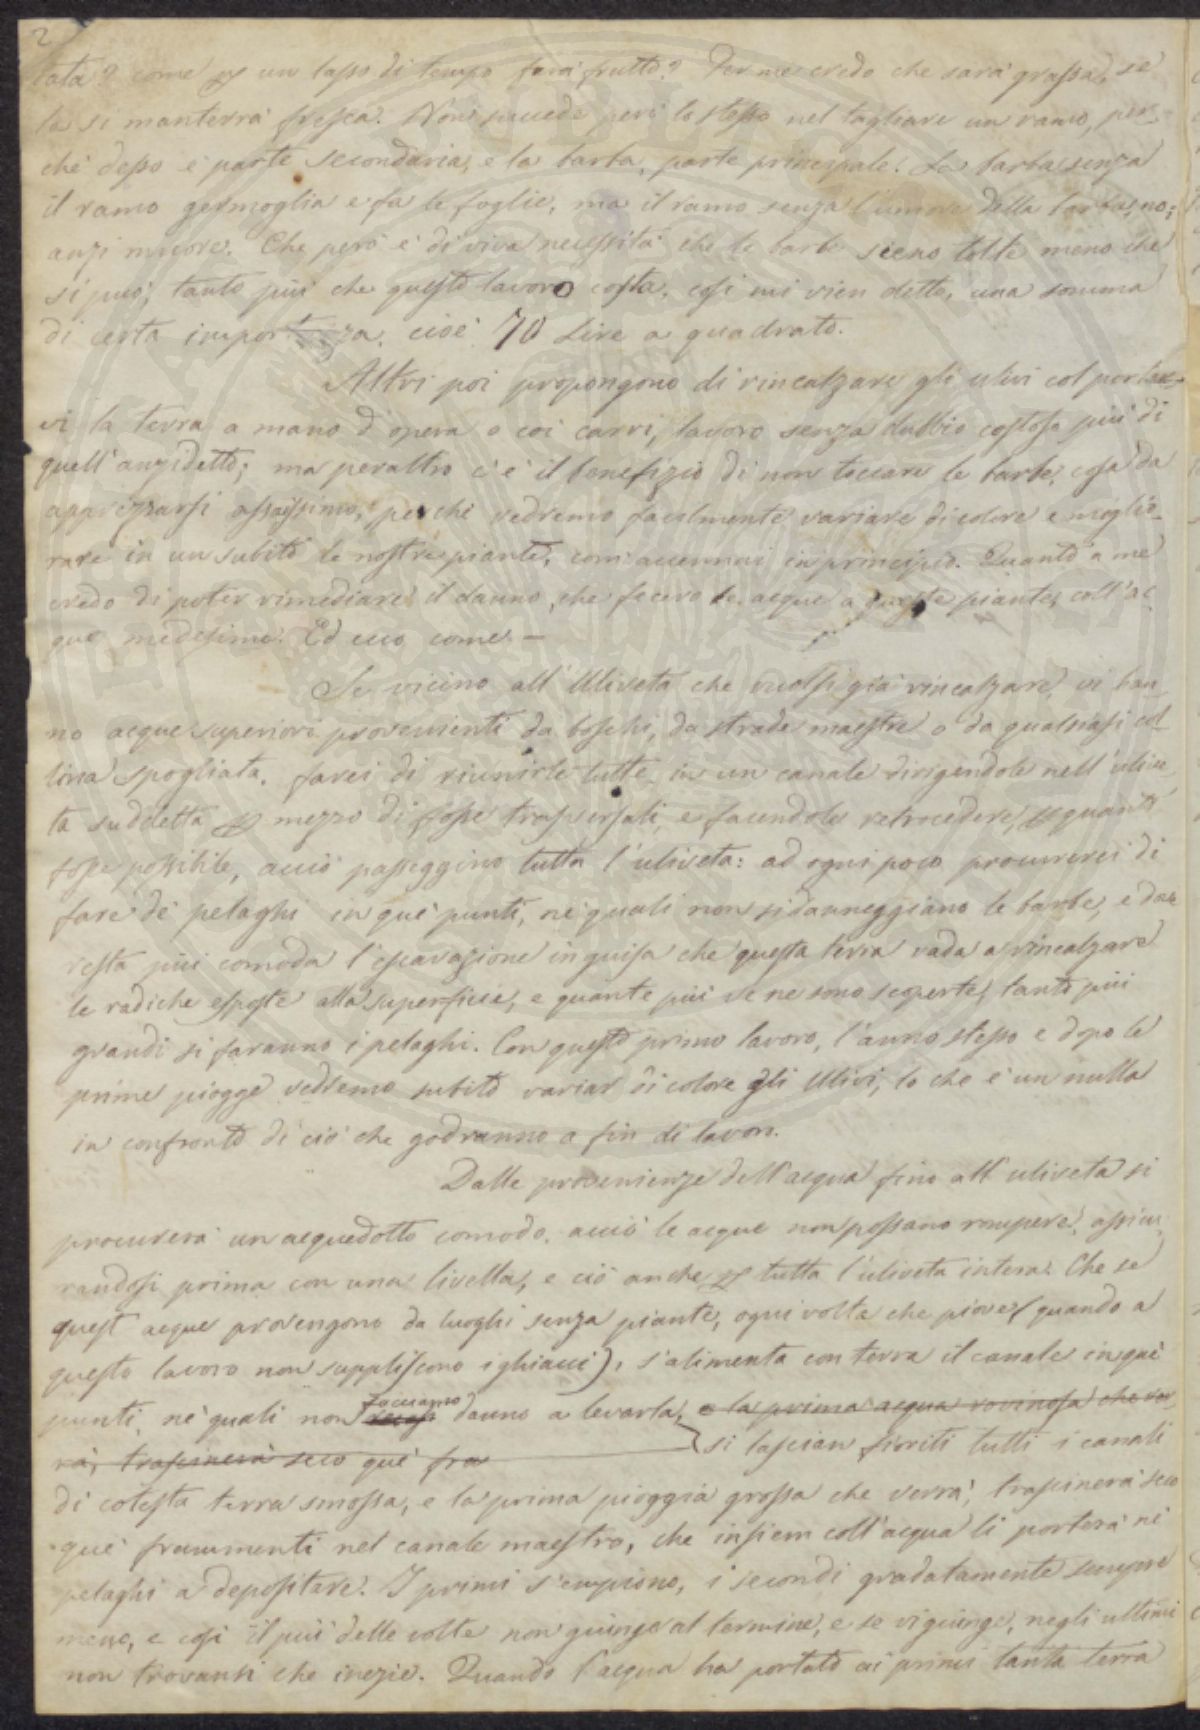 2
tata? come p un lasso di tempo farà frutto? Per me credo che sarà grassa, se
la si manterrà fresca. Non succede però lo stesso nel tagliare un ramo, per-
chè desso è parte secondaria, e la barba, parte principale. La barba senza
il ramo germoglia e fa le foglie, ma il ramo senza l'umore della barba, no;
anzi muore. Che però è di viva necessità che le barbe sieno tolte meno che
si può, tanto più che questo lavoro costa, così mi vien detto, una somma
di certa importanza, cioè 70 Lire a quadrato.
Altri poi propongono di rincalzare gli ulivi col portar-
vi la terra a mano d'opera o coi carri, lavoro senza dubbio costoso più di
quell'anzidetto; ma peraltro c'è il benefizio di non toccare le barbe, cosa da
apprezzarsi assaissimo, perchè vedremo facilmente variare di colore e miglio-
rare in un subito le nostre piante, com'accennai in principio. Quanto a me
credo di poter rimediare il danno, che fecero le acque a queste piante, coll'ac-
que medesime. Ed ecco come. —
Se vicino all'Uliveta che vuolsi già rincalzare, vi han-
no acque superiori provenienti da boschi, da strade maestre o da qualsiasi col-
lina spogliata, farei di riunirle tutte in un canale dirigendole nell'ulive-
ta suddetta p mezzo di fosse trasversali, e facendole retrocedere, p quanto
fosse possibile, acciò passeggino tutta l'uliveta: ad ogni poco procurerei di
fare de' pelaghi in que' punti, ne' quali non si danneggiano le barbe, e dove
resta più comoda l'escavazione in guisa che questa terra vada a rincalzare
le radiche esposte alla superficie, e quante più ve ne sono scoperte, tanto più
grandi si faranno i pelaghi. Con questo primo lavoro, l'anno stesso e dopo le
prime piogge vedremo subito variar di colore gli Ulivi, lo che è un nulla
in confronto di ciò che godranno a fin di lavoro.
Dalle provenienze dell'acqua fino all'uliveta si
procurerà un acquedotto comodo, acciò le acque non possano rompere, assicu-
randosi prima con una livella, e ciò anche p tutta l'uliveta intera. Che se
quest acque provengono da luoghi senza piante, ogni volta che piove (quando a
questo lavoro non suppliscono i ghiacci), s'alimenta con terra il canale in que'
punti, ne' quali non facciamo danno a levarla, e la prima acqua rovinosa che ver-
rà, trascinerà seco que' fra si lascian fioriti tutti i canali
di cotesta terra smossa, e la prima pioggia grossa che verrà, trascinerà seco
que' frammenti nel canale maestro, che insiem coll'acqua li porterà ne'
pelaghi a depositare. I primi s'empiono, i secondi gradatamente sempre
meno, e così il più delle volte non giunge al termine, e se vi giunge, negli ultimi
non trovansi che inezie. Quando l'acqua ha portato ai primi tanta terra